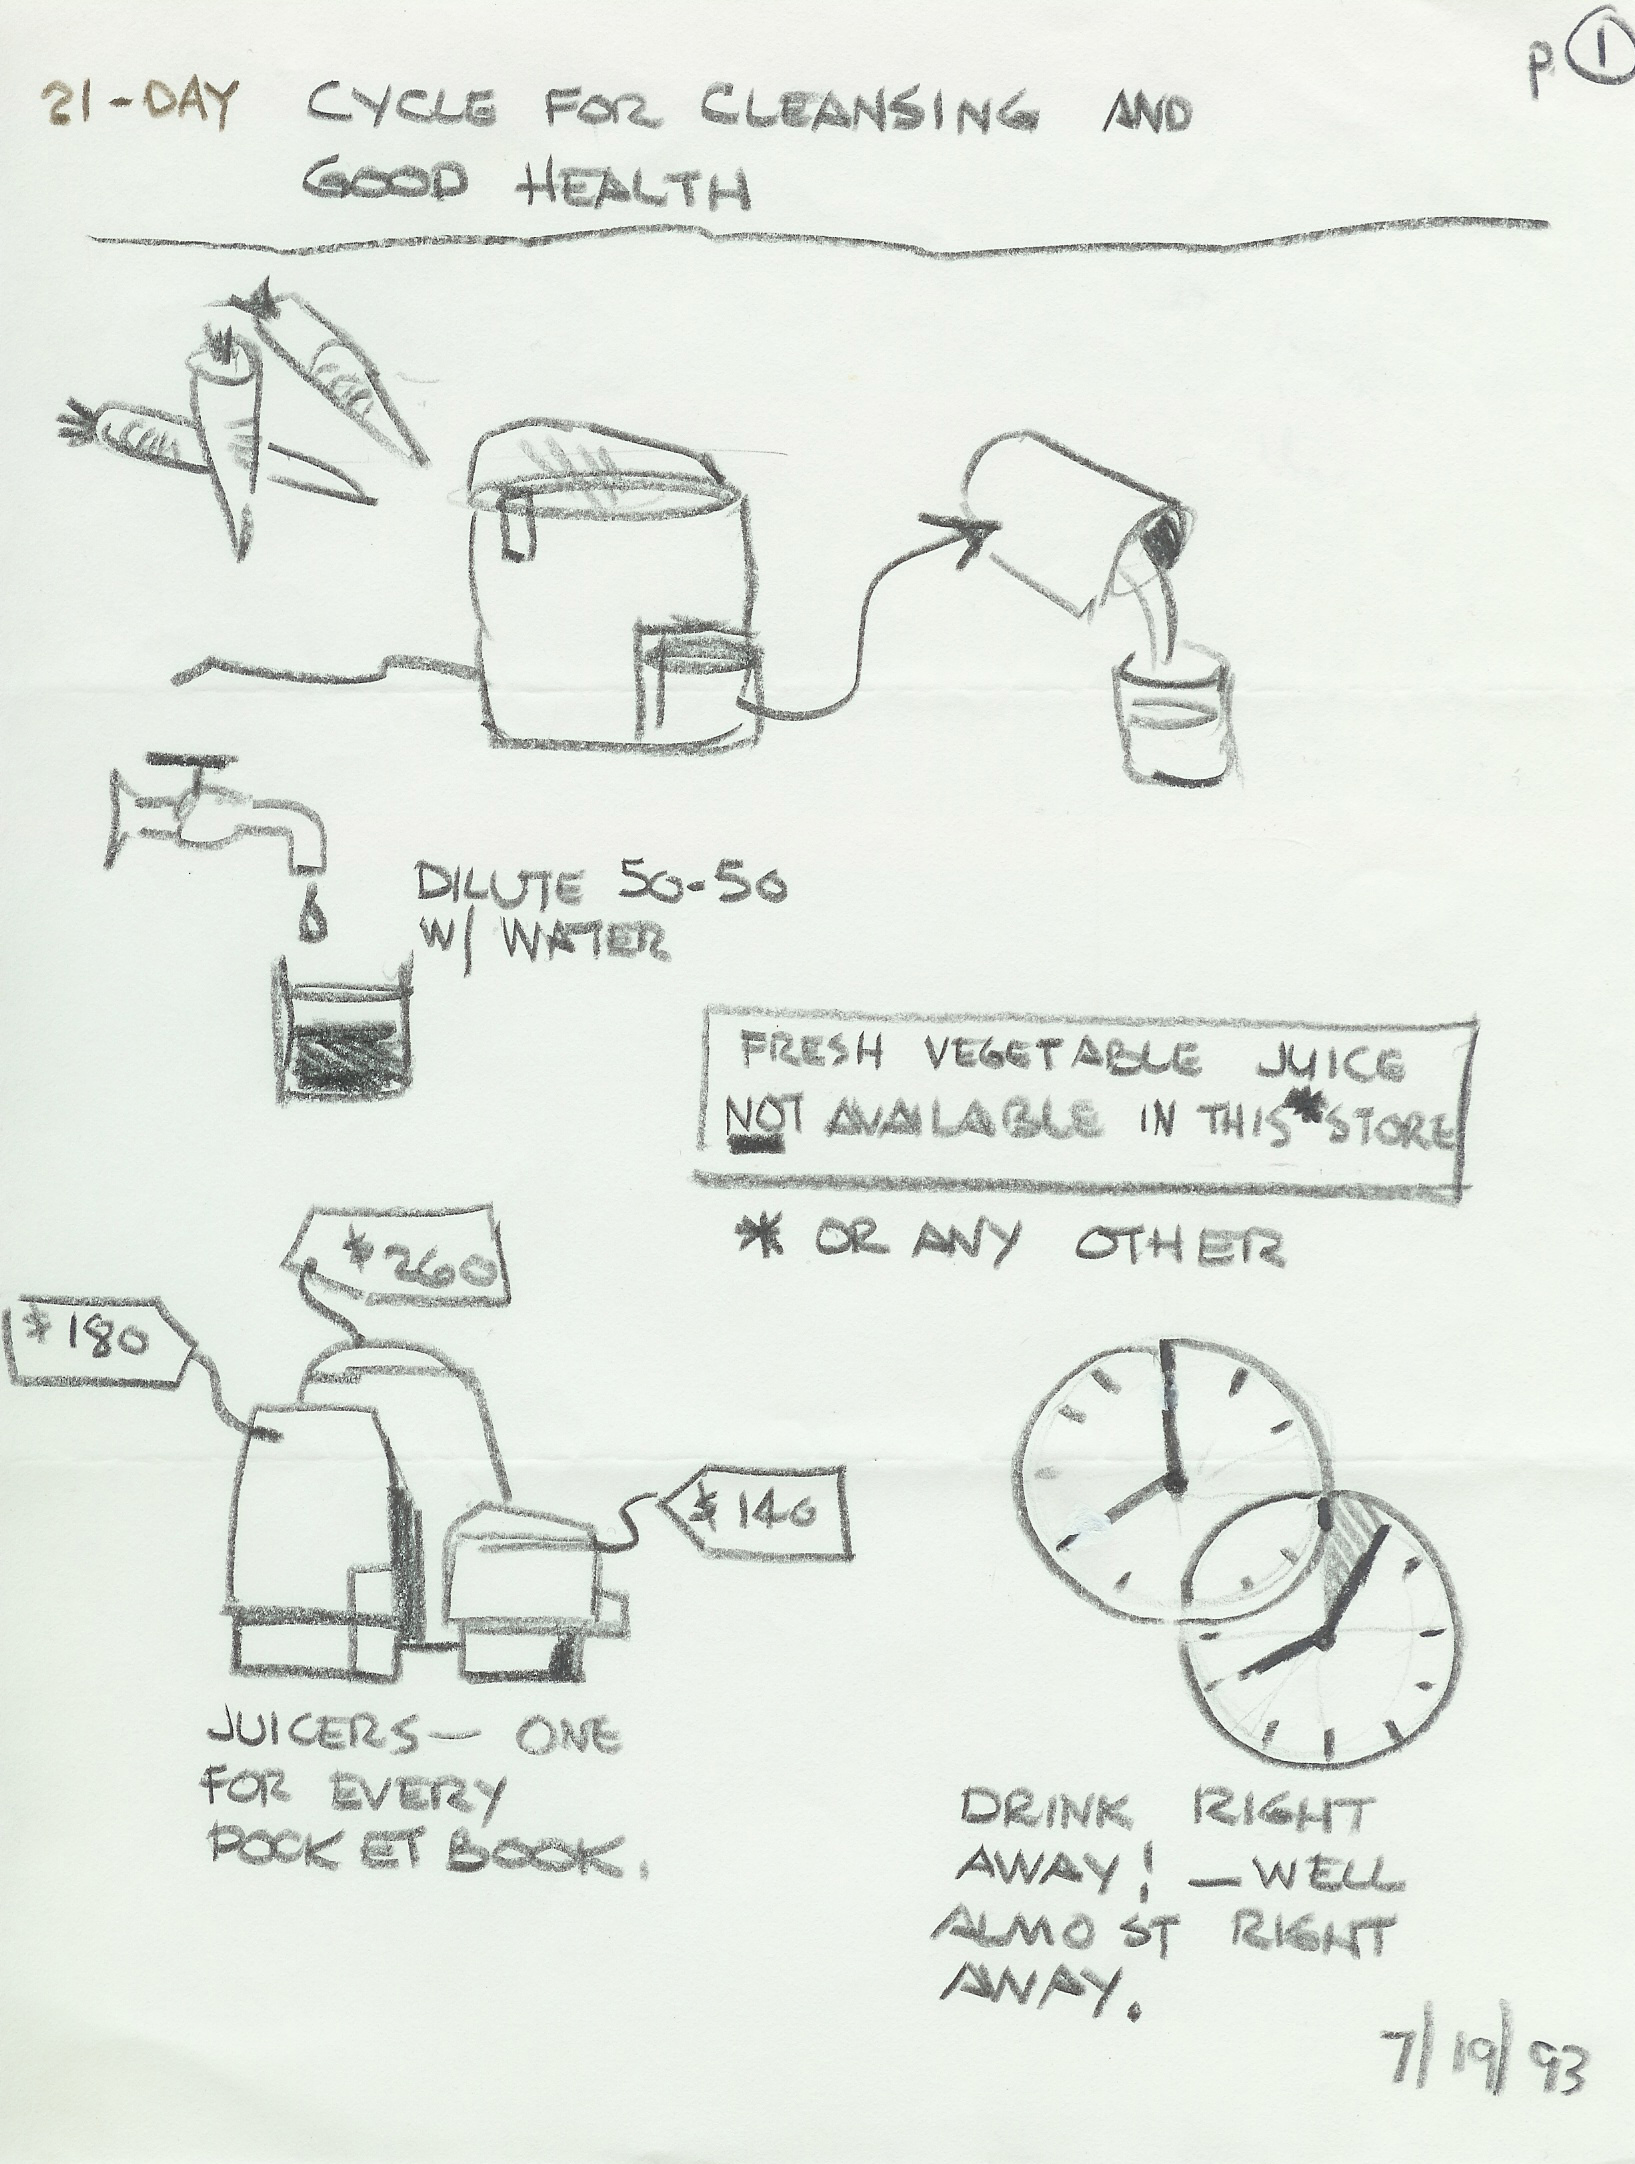 p. 1
21-DAY CYCLE FOR CLEANSING AND
GOOD HEALTH
DILUTE 50-50
W/ WATER
FRESH VEGETABLE JUICE
NOT AVAILABLE IN THIS*STORE
* OR ANY OTHER
$260
$180
$140
JUICERS— ONE
FOR EVERY
POCKETBOOK.
DRINK RIGHT
AWAY! — WELL
ALMOST RIGHT
AWAY.
7/19/93